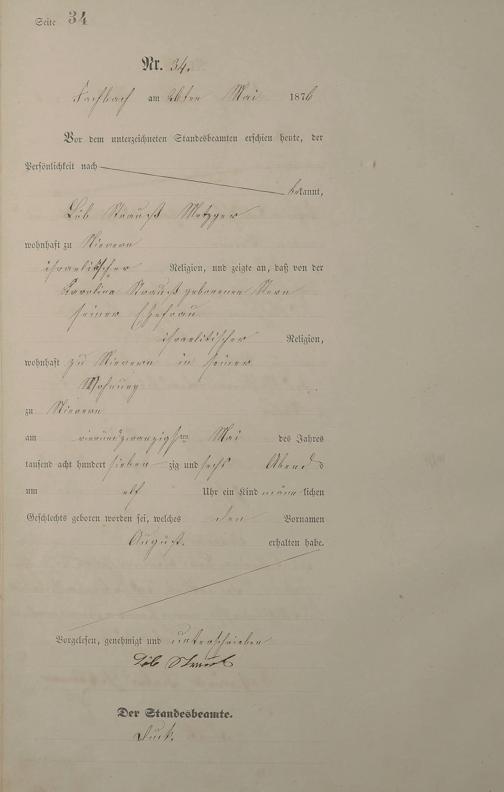 Seite 34
Nr. 34.
Fachbach am 26ten Mai 1876
Vor dem unterzeichneten Standesbeamten erschien heute, der
Persönlichkeit nach
bekannt,
Löb Strauß Metzger
wohnhaft zu Nievern
israelitischer Religion, und zeigte an, daß von der
Karolina Strauß geborenen Stern
seiner Ehefrau
israelitischer Religion,
wohnhaft zu Nievern in seiner
Wohnung
zu Nievern
am vierundzwanzigsten Mai des Jahres
tausend acht hundert sieben zig und sechs Abends
um elf Uhr ein Kind männlichen
Geschlechts geboren worden sei, welches den Vornamen
August. erhalten habe.
Vorgelesen, genehmigt und unterschrieben
Löb Strauß
Der Standesbeamte.